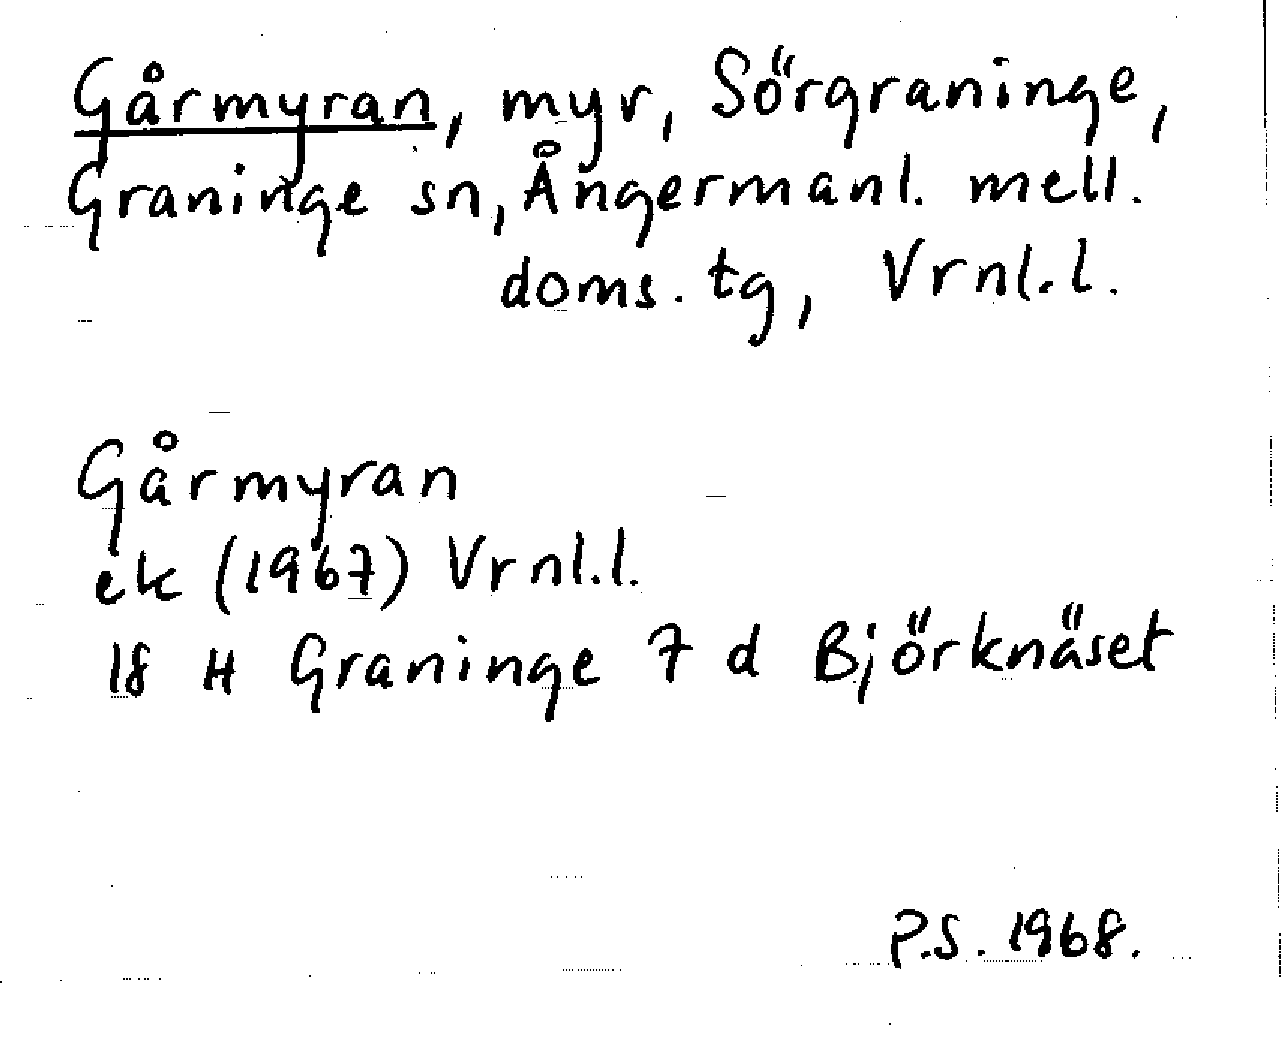 Gårmyran, myr, Sörgraninge,
Graninge sn, Ångermanl. mell.
doms. tg, Vrnl.l.
Gårmyran
ek (1967) Vrnl.l.
18 H Graninge 7 d Björknäset
P.S. 1968.